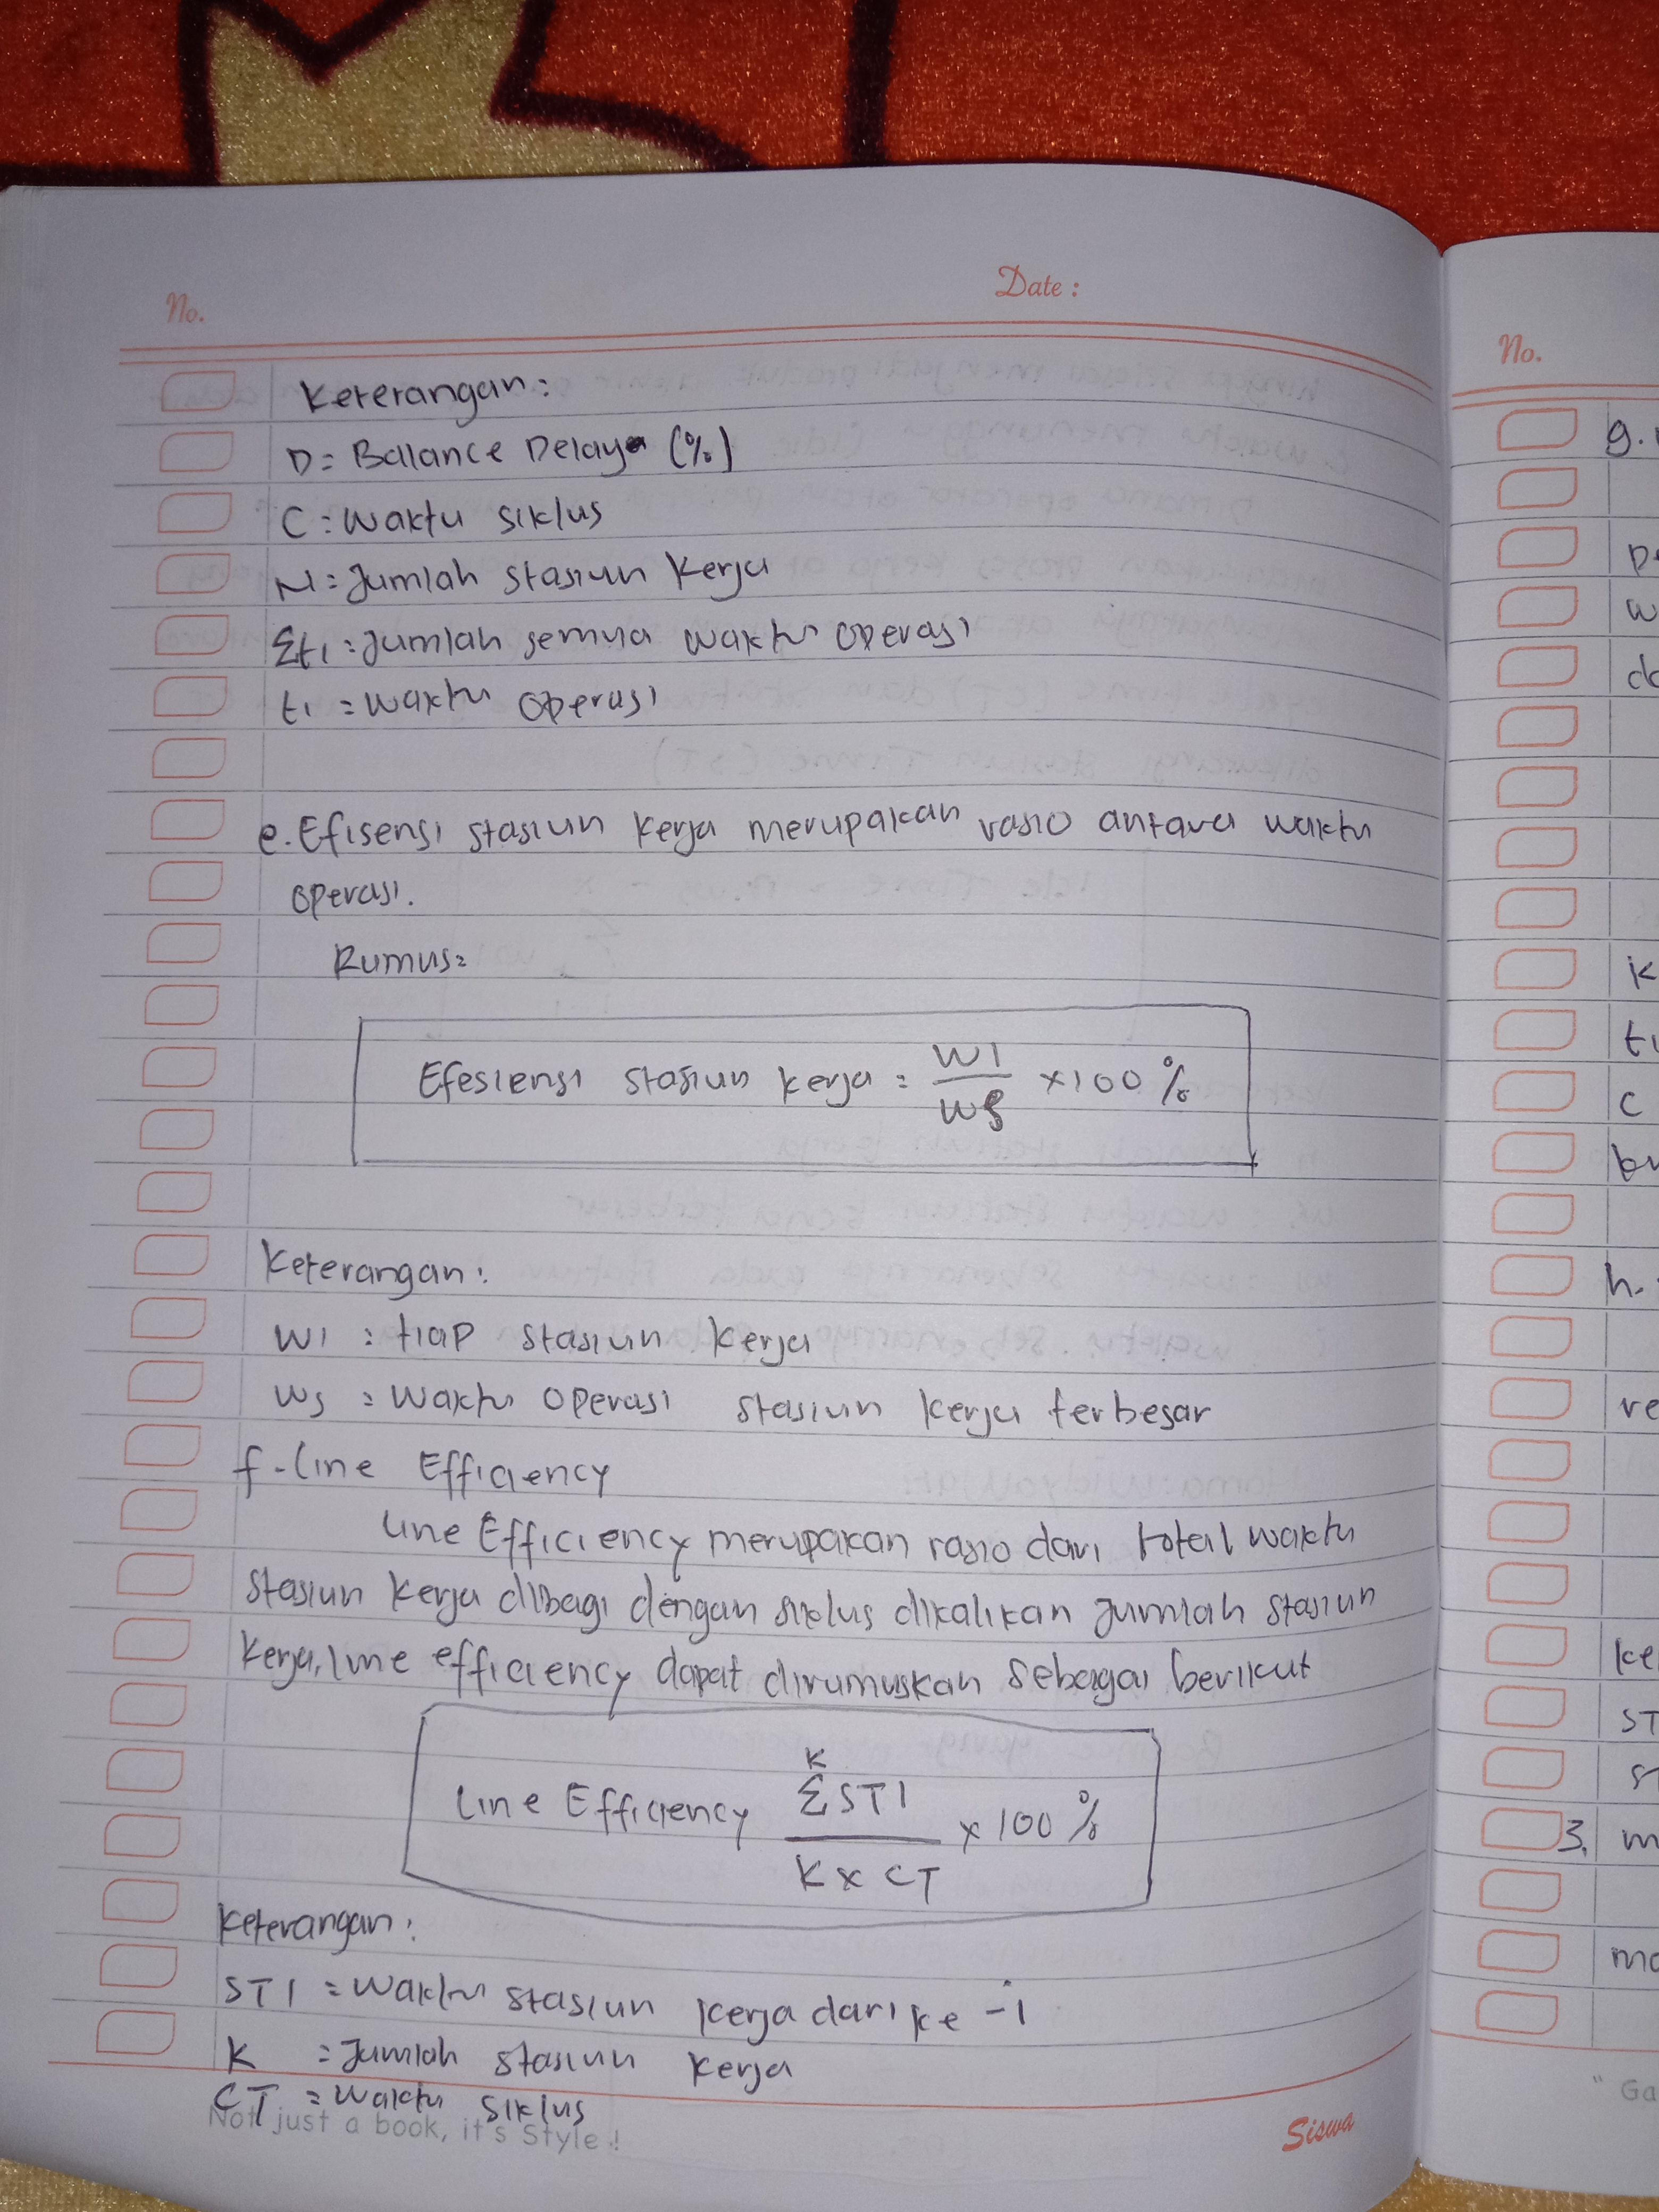 No.
Date :
Keterangan:
D= Balance Delay (%)
C = Waktu siklus
N = Jumlah stasiun kerja
Σti = Jumlah semua waktu operasi
ti = waktu operasi
e. Efisensi stasiun kerja merupakan rasio antara waktu
operasi.
Rumus=
Efesiensi stasiun kerja = WI/WS × 100 %
Keterangan:
WI : tiap stasiun kerja
WS = Waktu operasi stasiun kerja terbesar
f-Line Efficiency
Line Efficiency merupakan rasio dari total waktu
stasiun kerja dibagi dengan siklus dikalikan jumlah stasiun
kerja, line efficiency dapat dirumuskan sebagai berikut
K
Line Efficiency ΣSTI / K x CT × 100 %
Keterangan:
STI = Waktu stasiun kerja dari ke -i
K = Jumlah stasiun kerja
CT = Waktu siklus
Not just a book, it's Style !
Siswa
No.
g.
h.
3.
" Ga